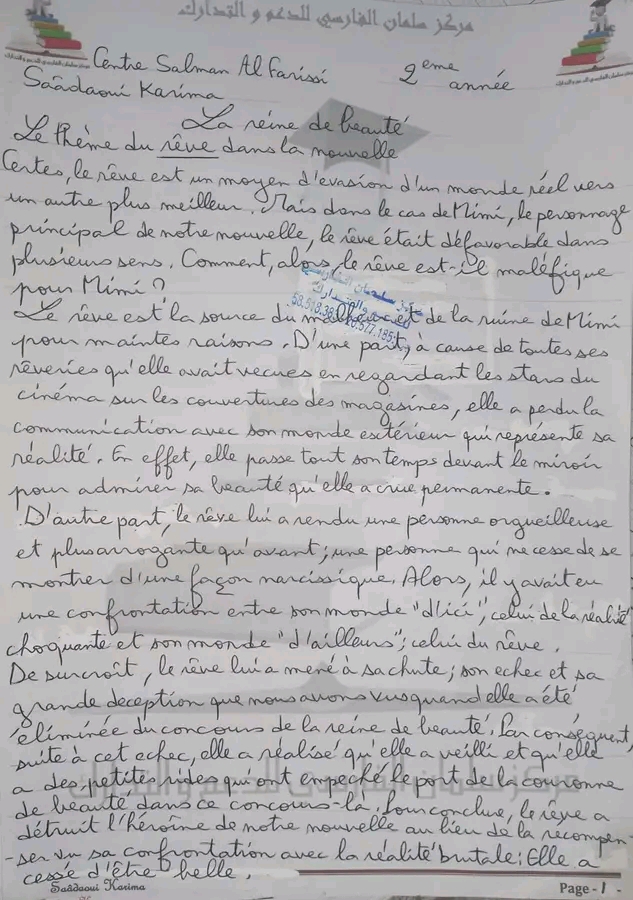 مركز سلمان الفارسي للدعم و التدارك
Centre Salman Al Farissi 2ème année
Saâdaoui Karima
La reine de beauté
Le thème du rêve dans la nouvelle
Certes, le rêve est un moyen d'evasion d'un monde réel vers
un autre plus meilleur. Mais dans le cas de Mimi, le personnage
principal de notre nouvelle, le rêve était défavorable dans
plusieurs sens. Comment, alors, le rêve est-il maléfique
pour Mimi ?
Le rêve est la source du malheur et de la ruine de Mimi
pour maintes raisons. D'une part, à cause de toutes ses
rêveries qu'elle avait vecues en regardant les stars du
cinéma sur les couvertures des magasines, elle a perdu la
communication avec son monde extérieur qui représente sa
réalité. En effet, elle passe tout son temps devant le miroir
pour admirer sa beauté qu'elle a crue permanente.
D'autre part, le rêve lui a rendu une personne orgueilleuse
et plus arrogante qu'avant ; une personne qui ne cesse de se
montrer d'une façon narcissique. Alors, il y avait eu
une confrontation entre son monde "d'ici", celui de la réalité
choquante et son monde "d'ailleurs"; celui du rêve.
De surcroît, le rêve lui a mené à sa chute ; son echec et sa
grande deception que nous avons vus quand elle a été
éliminée du concours de la reine de beauté. Par conséquent,
suite à cet echec, elle a réalisé qu'elle a veilli et qu'elle
a des petites rides qui ont empeché le port de la couronne
de beauté dans ce concours-là. Pour conclure, le rêve a
détruit l'héroïne de notre nouvelle au lieu de la recompen-
-ser vu sa confrontation avec la réalité brutale : Elle a
cessé d'être belle.
Saâdaoui Karima Page - 1 -